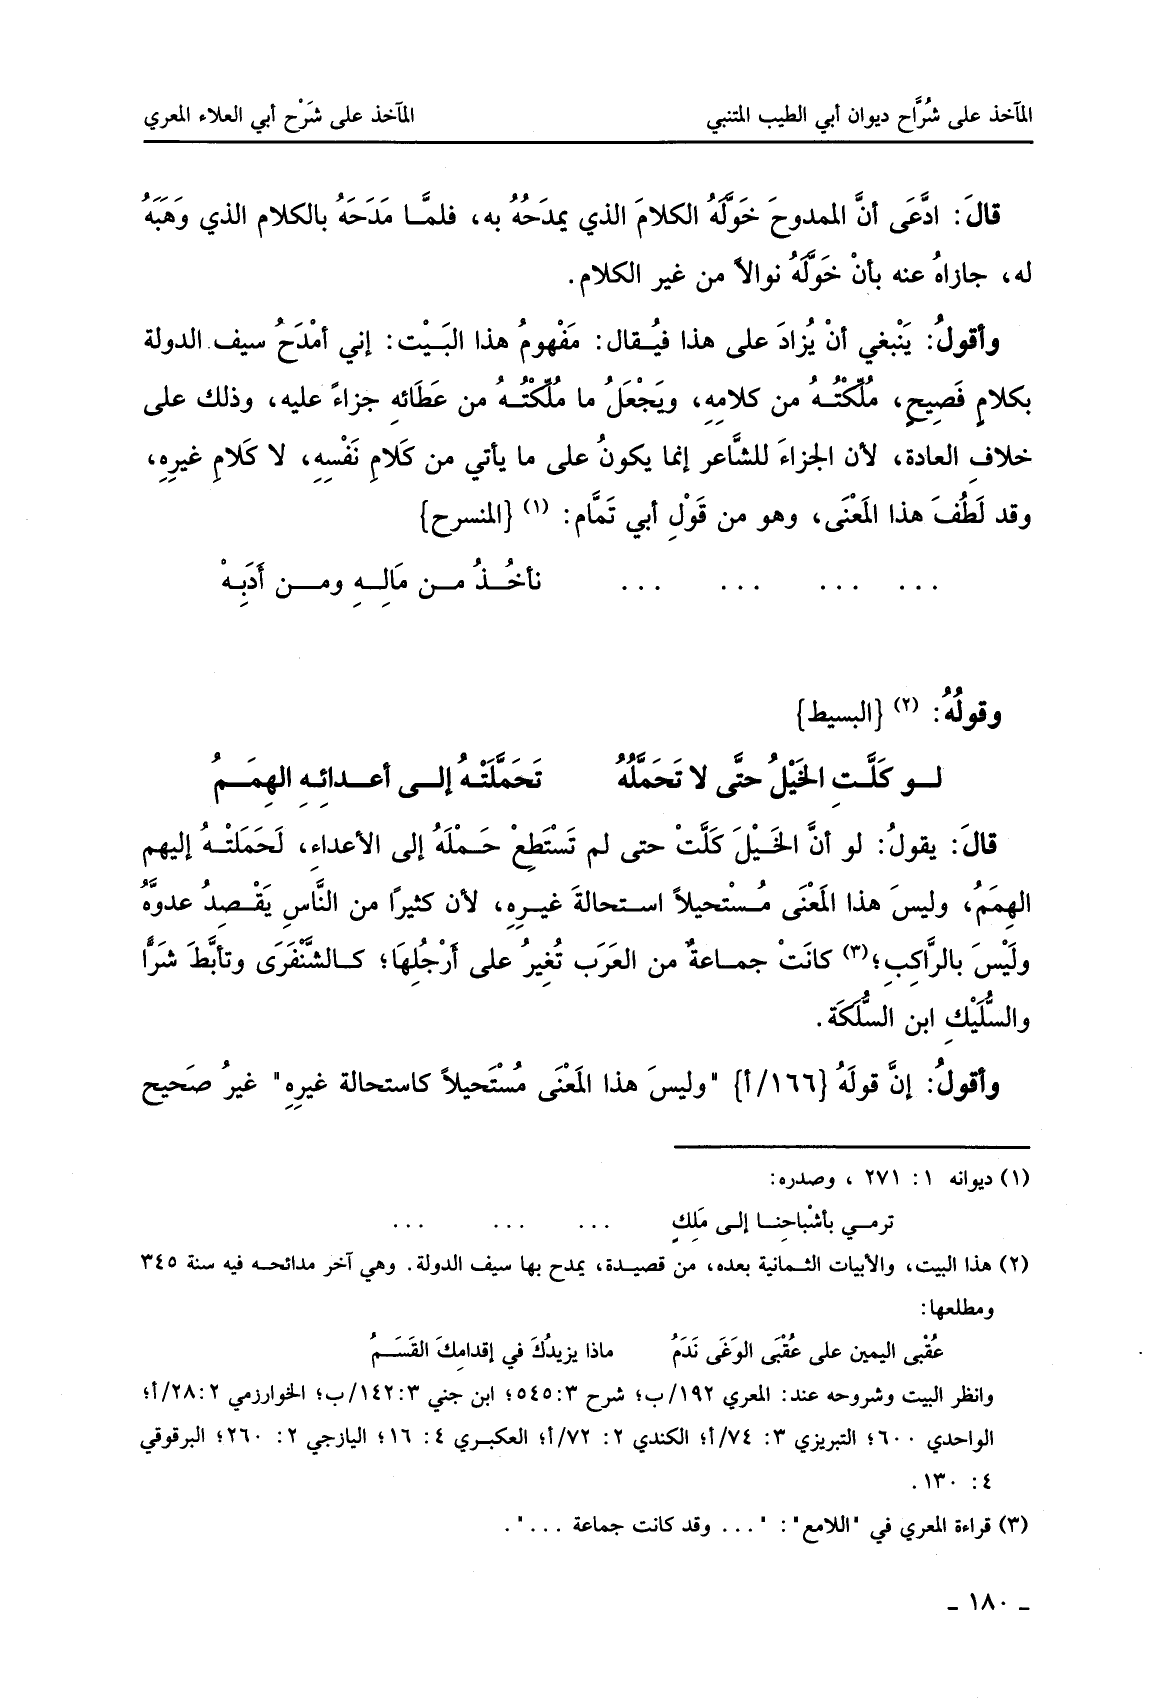 المآخذ على شُرَّاح ديوان أبي الطيب المتنبي المآخذ على شَرْح أبي العلاء المعري
قالَ: ادَّعَى أنَّ الممدوحَ خَوَّلَهُ الكلامَ الذي يمدَحُهُ به، فلمَّا مَدَحَهُ بالكلام الذي وَهَبَهُ
له، جازاهُ عنه بأنْ خَوَّلَهُ نوالاً من غير الكلام.
وأقولُ: يَنْبغي أنْ يُزادَ على هذا فيُقال: مَفْهومُ هذا البَيْت: إني أمْدَحُ سيف الدولة
بكلامٍ فَصِيحٍ، مُلِّكْتُهُ من كلامِهِ، ويَجْعَلُ ما مُلِّكْتُهُ من عَطَائهِ جزاءً عليه، وذلك على
خلافِ العادة، لأن الجزاءَ للشَّاعر إنما يكونُ على ما يأتي من كَلامِ نَفْسِهِ، لا كَلامِ غيرِهِ،
وقد لَطُفَ هذا المَعْنَى، وهو من قَوْلِ أبي تَمَّام: (١) {المنسرح}
... ... ... ... نأخُذُ من مَالِهِ ومن أَدَبِهْ
وقولُهُ: (٢) {البسيط}
لو كَلَّتِ الخَيْلُ حتَّى لا تَحَمَّلُهُ تَحَمَّلَتْهُ إلى أعدائِهِ الهِمَمُ
قالَ: يقولُ: لو أنَّ الخَيْلَ كَلَّتْ حتى لم تَسْتَطِعْ حَمْلَهُ إلى الأعداءِ، لَحَمَلَتْهُ إليهم
الهِمَمُ، وليسَ هذا المَعْنَى مُسْتحيلاً استحالةَ غيرِهِ، لأن كثيرًا من النَّاسِ يَقْصِدُ عدوَّهُ
ولَيْسَ بالرَّاكِبِ؛(٣) كانَتْ جماعةٌ من العَرَب تُغيرُ على أَرْجُلِهَا؛ كالشَّنْفَرَى وتأبَّطَ شَرًّا
والسُّلَيْكِ ابن السُّلَكَة.
وأقولُ: إنَّ قولَهُ {١٦٦/أ} "وليسَ هذا المَعْنَى مُسْتَحيلاً كاستحالة غيرِهِ" غيرُ صَحيح
(١) ديوانه ١: ٢٧١ ، وصدره:
ترمي بأشْباحِنا إلى مَلِكٍ ... ... ...
(٢) هذا البيت، والأبيات الثمانية بعده، من قصيدة، يمدح بها سيف الدولة. وهي آخر مدائحه فيه سنة ٣٤٥
ومطلعها:
عُقْبى اليمين على عُقْبَى الوَغَى نَدَمُ ماذا يزيدُكَ في إقدامِكَ القَسَمُ
وانظر البيت وشروحه عند: المعري ١٩٢/ب؛ شرح ٣: ٥٤٥؛ ابن جني ٣: ١٤٢/ب؛ الخوارزمي ٢: ٢٨/أ؛
الواحدي ٦٠٠؛ التبريزي ٣: ٧٤/أ؛ الكندي ٢: ٧٢/أ؛ العكبري ٤: ١٦؛ اليازجي ٢: ٢٦٠؛ البرقوقي
٤: ١٣٠.
(٣) قراءة المعري في "اللامع": "... وقد كانت جماعة ...".
ـ ١٨٠ ـ